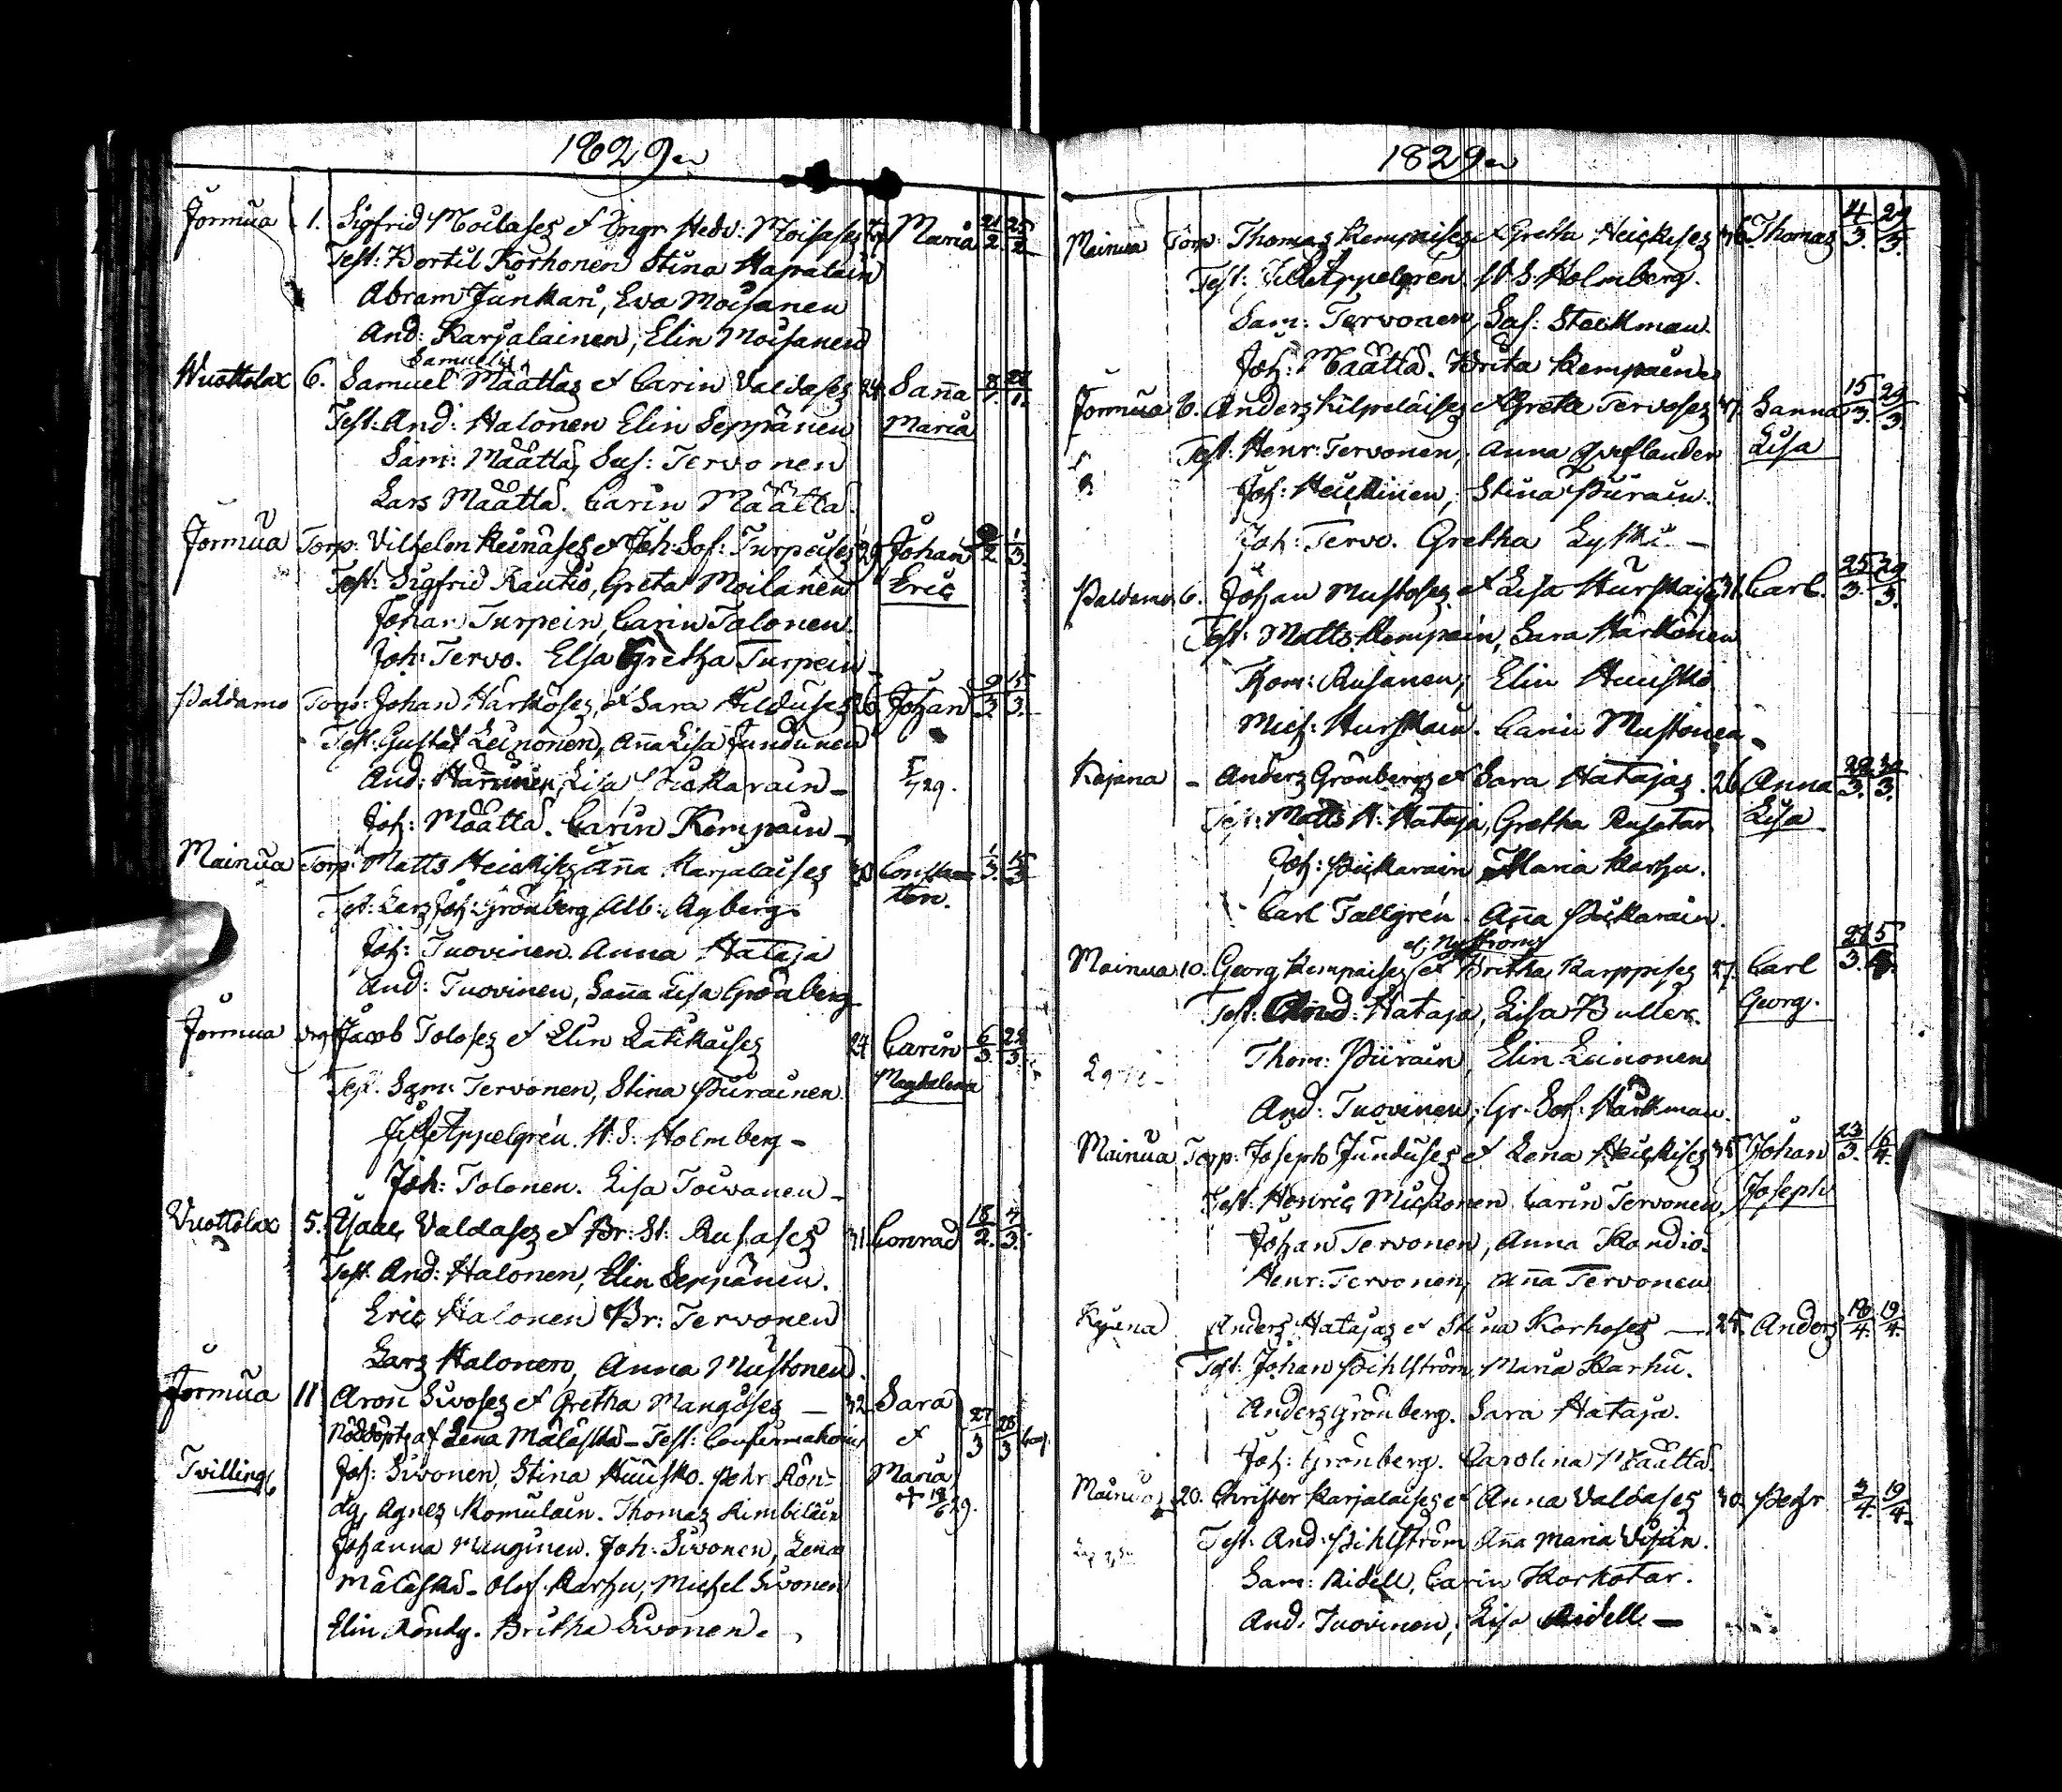 1829
Jormua 1. Sigfrid Moilases et Ingr. Hedv: Moisases Maria 21/2 25/2
Test: Bertil Korhonen Stina Hapalain
Abram Junkari, Eva Moisanen
And: Karjalainen, Elin Moisanen
Samuels
Wuottolax 6. Samuel Määttäs et Carin Valdases 24 Sanna 8/1 28/1
Test: And: Halonen Elin Seppänen Maria
Sam: Määttä, Sus: Tervonen
Lars Määttä. Carin Määttä.
Jormua Torp: Vilhelm Keinäses et Joh: Sof: Turpeises 29 Johan 2 1/3
Test: Sigfrid Rautio, Greta Moilanen Eric
Johan Turpein, Carin Tolonen.
Joh: Tervo. Elsa Gretha Turpein
Paldamo Torp: Johan Härköses, et Sara Hilduses 26 Johan 9/3 15/3
Test: Gustaf Leinonen, Anna Lisa Jundunen
And: Hannunen, Lisa Pickarain 29.
Joh: Määttä. Carin Kempain
Mainua Torp: Matts Heickises Anna Karjalaises 30 Constan 1/3 15/3
Test: Lars Joh: Grönberg, Alb: Ryberg tin.
Joh: Tuovinen. Anna Hataja
And: Tuovinen, Sanna Lisa Grönberg
Jormua Jacob Toloses et Elin Latikaises 24 Carin 6/3 22/3
Test: Sam: Tervonen, Stina Piirainen Magdalena
Appelgrén. H. S: Holmberg
Joh: Tolonen. Lisa Toivanen
Vuottolax 5. Isaac Valdases et Br: St: Rusases 31 Conrad 18/2 7/3
Test: And: Halonen, Elin Seppänen.
Eric Halonen Br: Tervonen
Lars Halonen, Anna Mustonen.
Jormua 11 Aron Sivoses et Gretha Mangoses 32 Sara 27/3 28/3
Nöddöpts af Lena Mäläskä Test: Confirmationis et
Tvillingar Joh: Sivonen, Stina Huusko. Pehr Rön- Maria
dy, Agnes Komulain. Thomas Kimbiläin + 18/6 29.
Johanna Manginen. Joh: Sivonen, Lena
Mäläskä. Olof Karhu, Michel Sivonen
Elin Röndy. Britha Sivonen.
1829
Mainua Torp: Thomas Kempaises et Gretha Heickises 36 Thomas 11/3 29/3
Test: Appelgren H S: Holmberg.
Sam: Tervonen, Sof: Steckman.
Joh: Määttä. Brita Kempainen
Jormua 6. Anders Kilpeläises et Greta Tervoses 37. Sanna 15/3 29/3
Test: Henr: Tervonen, Anna Qveflander Lisa
Joh: Heickinen, Stina Piirain.
Joh: Tervo. Gretha Lytki
Paldamo 6. Johan Mustoses et Lisa Hurskais 31. Carl. 25/3 29/3
Test: Matts Kempain, Sara Härkönen
Tom: Rusanen, Elin Huusko
Mich: Hurskain. Carin Mustonen
Kajana Anders Grönbergs et Sara Hatajas 26 Anna 29/3 30/3
Test: Matts H: Hataja, Gretha Rusatar Lisa
Joh: Pickarain Maria Karhu.
Carl Tallgrén. Anna Pickarain.
Nyströms
Mainua 10. Georg Kempaises et Britha Karppises 27. Carl 28/3 5
Test: And: Hataja, Lisa Buller. Georg.
Thom: Piirain, Elin Leinonen
And: Tuovinen, Gr. Sof: Härkman.
Mainua Torp: Joseph Junduses et Lena Heickises 35 Johan 23/3 16/4
Test: Henric Mickonen Carin Tervonen, Joseph
Johan Tervonen, Anna Kandio.
Henr: Tervonen, Anna Tervonen
Kajana Anders Hatajas et Stina Korhoses 25. Anders 18/4 19/4
Test: Johan Pihlström, Maria Karhu.
Anders Grönberg. Sara Hataja.
Joh: Grönberg. Carolina Määttä.
Mainua 20. Christer Karjalaises et Anna Valdases 30. Pehr 3/4 19/4
Test: And: Pihlström Anna Maria Visän.
Sam: Ridell, Carin Korkotar.
And: Tuovinen, Lisa Ridell